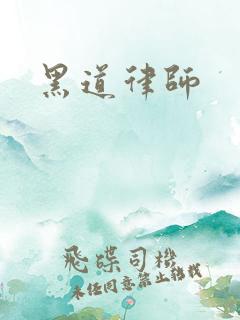 黑道律師
飛碟司機
未经同意禁止转载